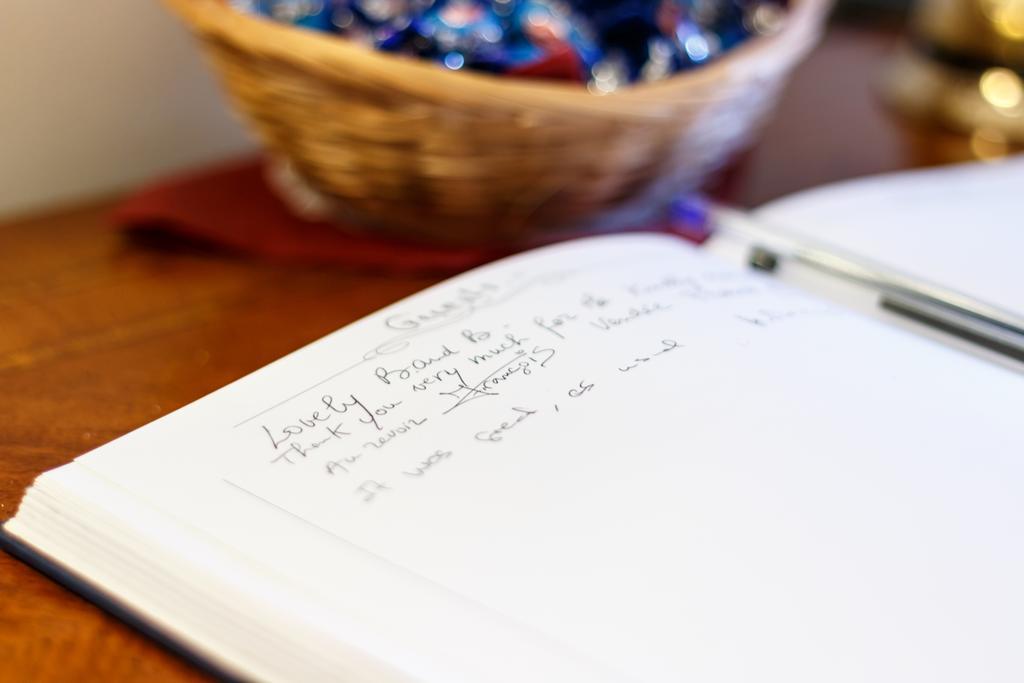 Guests
Lovely B and B.
Thank you very much for the
Au revoir François
It was Good, as usual